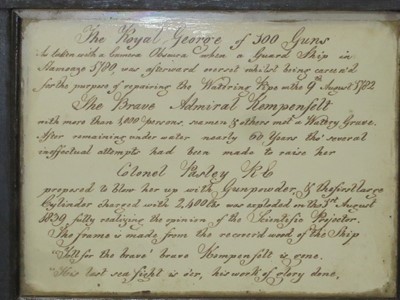 The Royal George of 300 Guns
As taken with a Camera Obscura when a Guard Ship in
1780, was afterward overset whilst being careen'd
for the purpose of repairing the Watering Pipe on the 9th August 1782
The Brave Admiral Kempenfelt
with more than 1,000 persons, seamen & others met a Watery Grave.
After remaining under water nearly 60 Years tho' several
ineffectual attempts had been made to raise her
Colonel Pasley RE
proposed to blow her up with Gunpowder, & the first large
Cylinder charged with 2,400 lbs was exploded on the 3rd August
1839, fully realizing the opinion of the Scientific Projector.
The frame is made from the recover'd wood of the Ship
"Toll for the brave" brave Kempenfelt is gone.
"His last sea fight is o'er, his work of glory done.